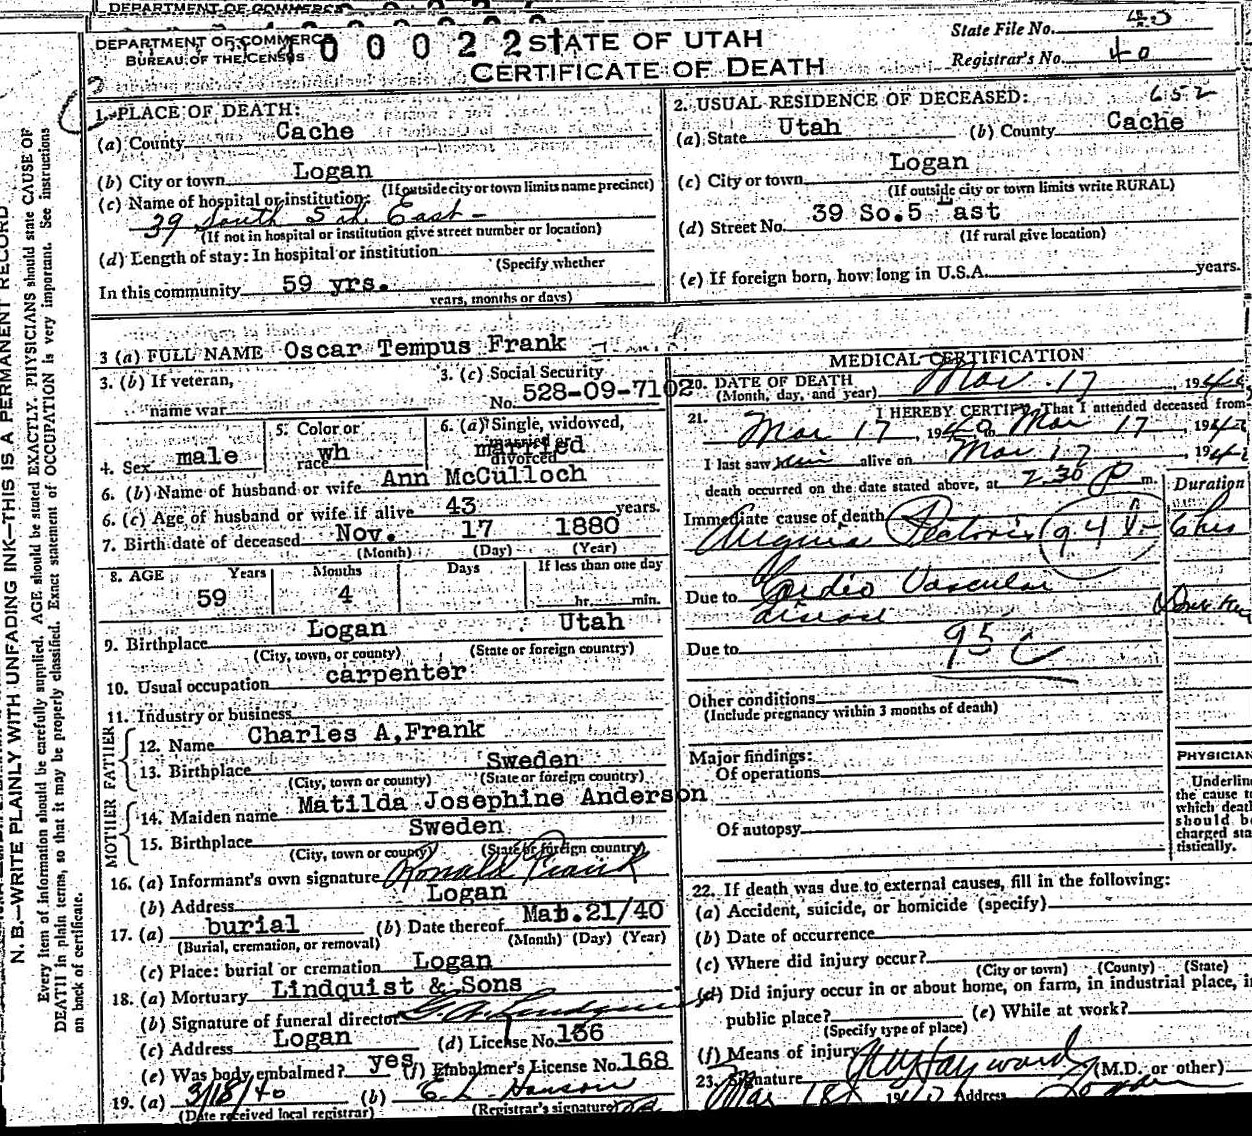 DEPARTMENT OF COMMERCE
DEPARTMENT OF COMMERCE
BUREAU OF THE CENSUS
STATE OF UTAH
CERTIFICATE OF DEATH
State File No.
Registrar's No. 40
1. PLACE OF DEATH:
(a) County Cache
(b) City or town Logan
(If outside city or town limits name precinct)
(c) Name of hospital or institution:
39 South 5th East
(If not in hospital or institution give street number or location)
(d) Length of stay: In hospital or institution
(Specify whether
In this community 59 yrs.
years, months or days)
2. USUAL RESIDENCE OF DECEASED: 652
(a) State Utah (b) County Cache
(c) City or town Logan
(If outside city or town limits write RURAL)
(d) Street No. 39 So.5 East
(If rural give location)
(e) If foreign born, how long in U.S.A. years.
3 (a) FULL NAME Oscar Tempus Frank
3. (b) If veteran,
name war
3. (c) Social Security
No. 528-09-7102
4. Sex male
5. Color or
race wh
6. (a) Single, widowed,
married or
divorced married
6. (b) Name of husband or wife Ann McCulloch
6. (c) Age of husband or wife if alive 43 years.
7. Birth date of deceased Nov. 17 1880
(Month) (Day) (Year)
8. AGE Years Months Days If less than one day
59 4 hr. min.
9. Birthplace Logan Utah
(City, town, or county) (State or foreign country)
10. Usual occupation carpenter
11. Industry or business
FATHER
12. Name Charles A,Frank
13. Birthplace Sweden
(City, town or county) (State or foreign country)
MOTHER
14. Maiden name Matilda Josephine Anderson
15. Birthplace Sweden
(City, town or county) (State or foreign country)
16. (a) Informant's own signature Ronald Frank
(b) Address Logan
17. (a) burial (b) Date thereof 21/40
(Burial, cremation, or removal) (Month) (Day) (Year)
(c) Place: burial or cremation Logan
18. (a) Mortuary Lindquist & Sons
(b) Signature of funeral director
(c) Address Logan (d) License No.
(e) Was body embalmed? yes (f) Embalmer's License No. 168
19. (a) 3/18/40 (b) E. L. Hanson
(Date received local registrar) (Registrar's signature)
MEDICAL CERTIFICATION
20. DATE OF DEATH Mar. 17, 194
(Month, day, and year)
21. I HEREBY CERTIFY, That I attended deceased from
Mar 17, 1940 to Mar 17, 194
I last saw him alive on Mar 17, 194
death occurred on the date stated above, at 2.30 P m.
Duration
Immediate cause of death
Angina Pectoris 94 b
Due to Cardio Vascular
disease
Due to 95 c
Other conditions
(Include pregnancy within 3 months of death)
Major findings:
Of operations
Of autopsy
PHYSICIAN
Underline
the cause to
which death
should be
charged sta
tistically.
22. If death was due to external causes, fill in the following:
(a) Accident, suicide, or homicide (specify)
(b) Date of occurrence
(c) Where did injury occur?
(City or town) (County) (State)
(d) Did injury occur in or about home, on farm, in industrial place, in
public place? (e) While at work?
(Specify type of place)
(f) Means of injury
23. Signature Hayward (M.D. or other)
Mar 18 1940 Address Logan
N. B.—WRITE PLAINLY WITH UNFADING INK—THIS IS A PERMANENT RECORD
Every item of information should be carefully supplied. AGE should be stated EXACTLY. PHYSICIANS should state CAUSE OF
DEATH in plain terms, so that it may be properly classified. Exact statement of OCCUPATION is very important. See instructions
on back of certificate.